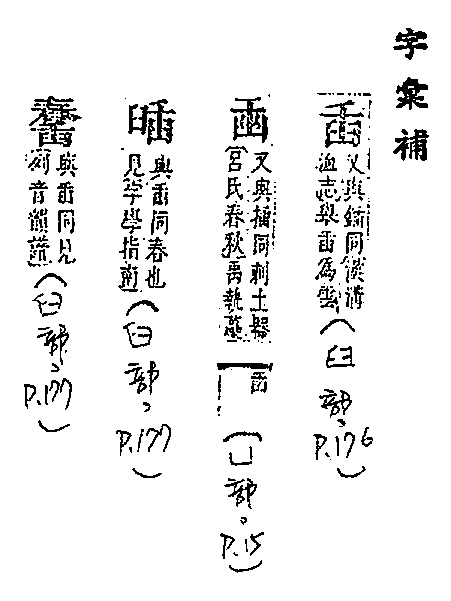 字彙補
臿
又與鍤同漢溝
洫志舉臿爲雲
(臼部、
P.176)
又與插同刺土器
呂氏春秋禹執
臿
(凵部。
P.15)
與臿同舂也
見字學指南
(臼部、
P.177)
與臿同見
音韻
(臼部、
P.177)